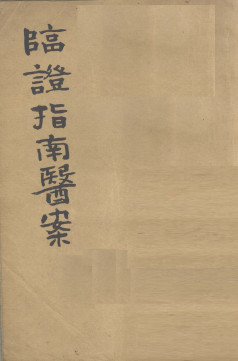 臨證指南醫案